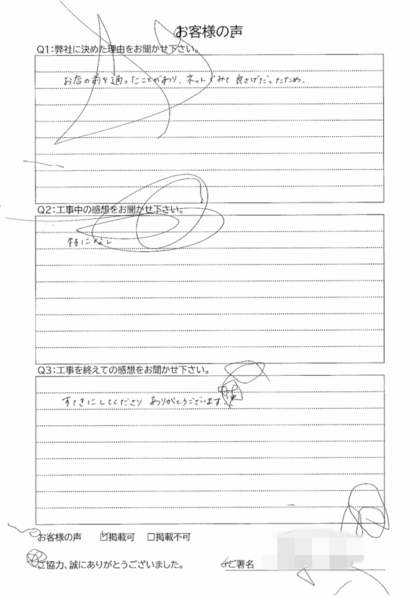 お客様の声
Q1：弊社に決めた理由をお聞かせ下さい。
お店の前を通ったことがあり、ネットでみて良さげだったため、
Q2：工事中の感想をお聞かせ下さい。
特になし
Q3：工事を終えての感想をお聞かせ下さい。
すてきにしてくださり ありがとうございます
お客様の声 ☑掲載可 □掲載不可
ご協力、誠にありがとうございました。 ご署名